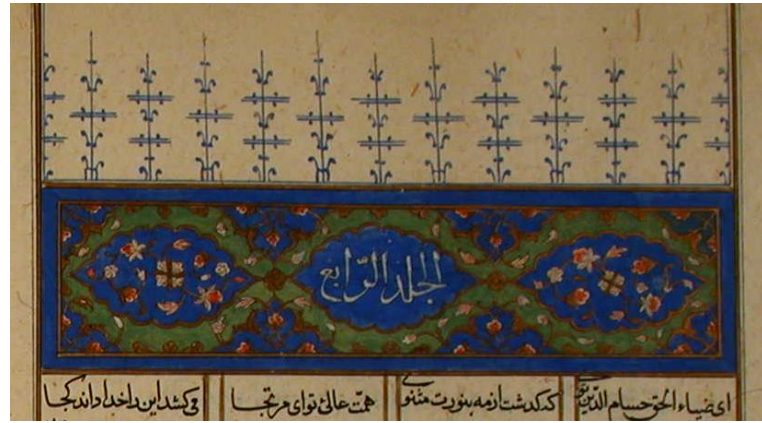 الجلد الرّابع
ای ضیاء الحق حسام الدین توی که گذشت از مه بنورت مثنوی
همّت عالئ تو ای مرتجا می‌کشد این را خدا داند کجا